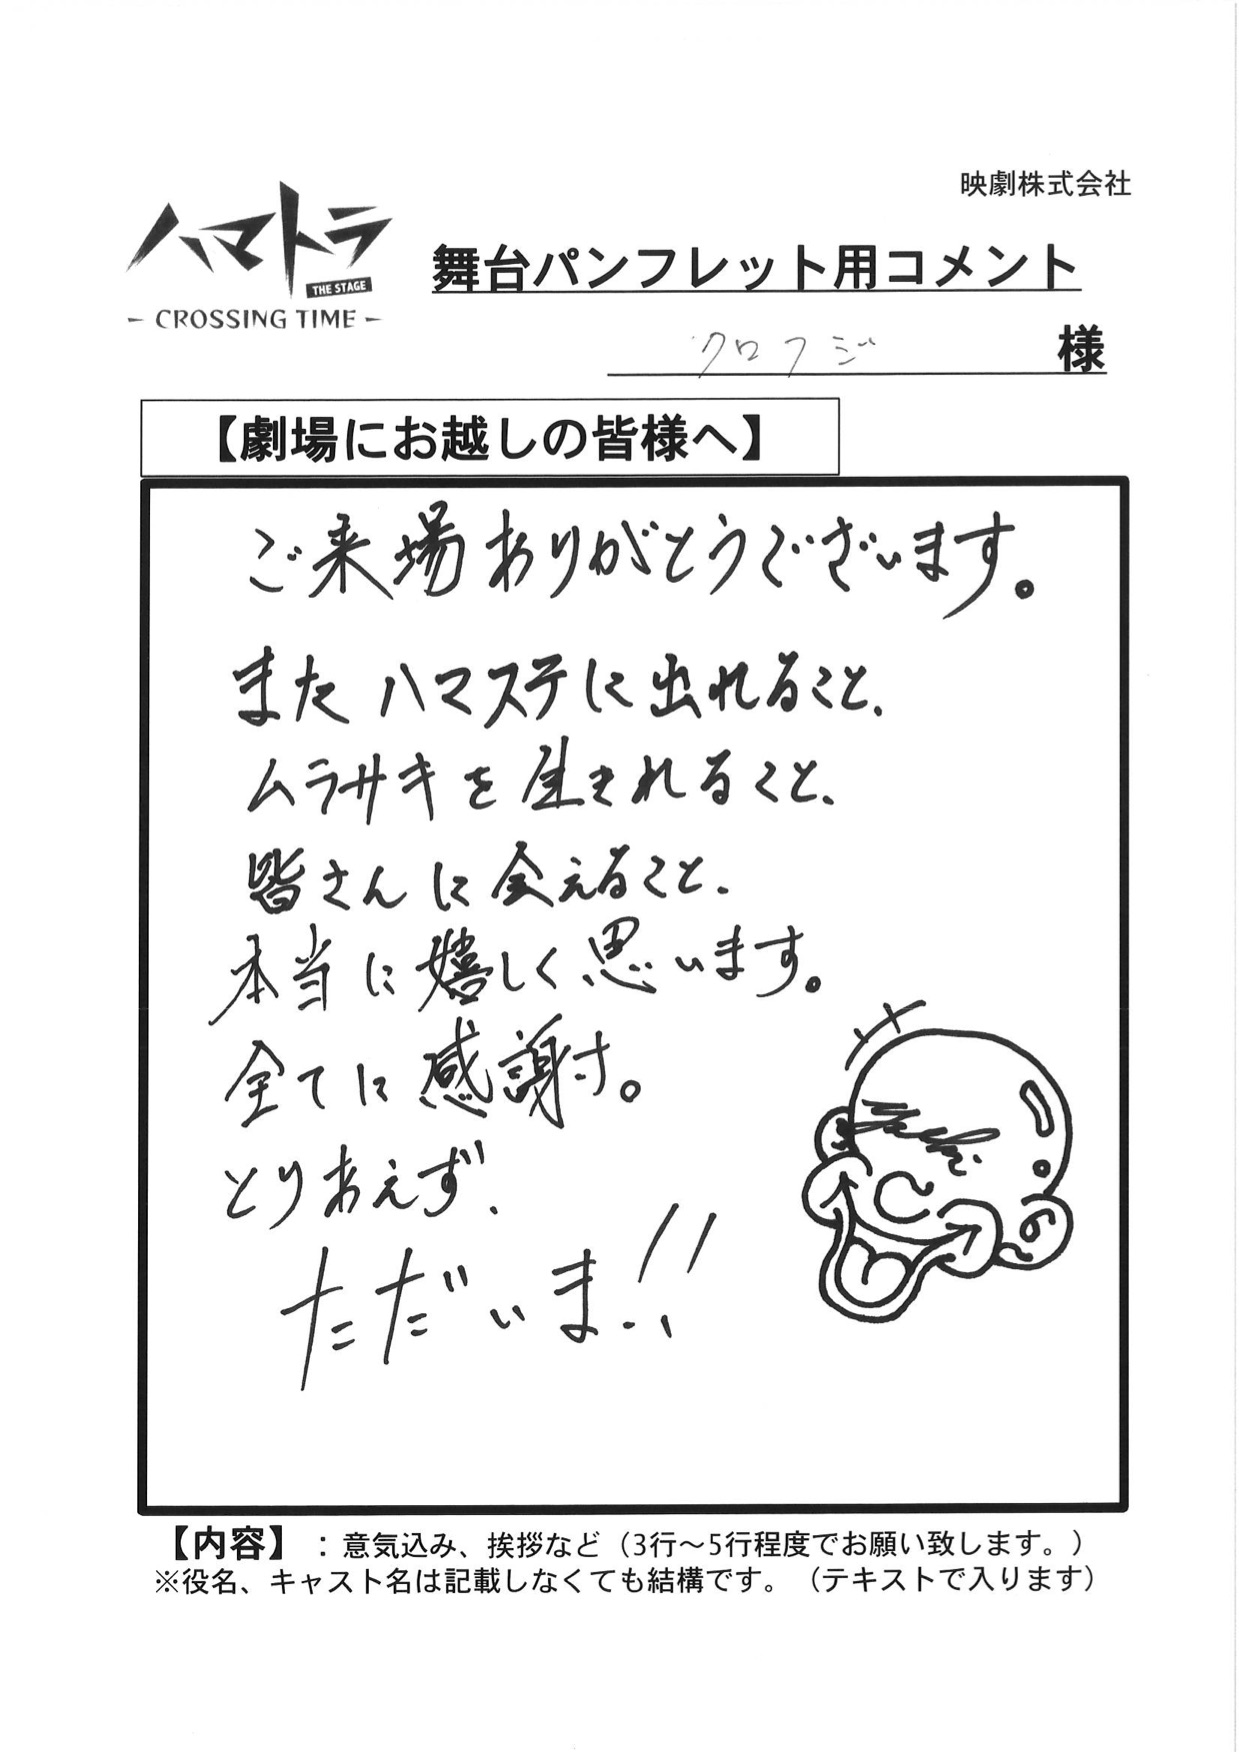 映劇株式会社
ハマトラ
THE STAGE
- CROSSING TIME -
舞台パンフレット用コメント
クロフジ 様
【劇場にお越しの皆様へ】
ご来場ありがとうございます。
またハマステに出れること、
ムラサキを生きれること、
皆さんに会えること、
本当に嬉しく思います。
全てに感謝す。
とりあえず、
ただいま!!
【内容】：意気込み、挨拶など（3行～5行程度でお願い致します。）
※役名、キャスト名は記載しなくても結構です。（テキストで入ります）